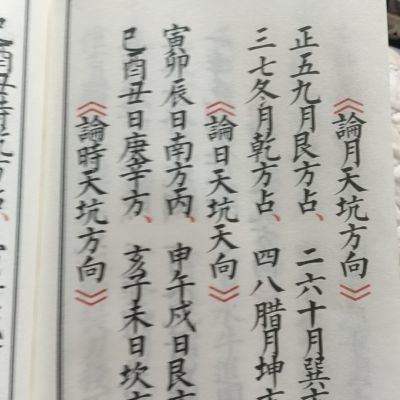 《論月天坑方向》
正五九月艮方占、 二六十月巽
三七冬月乾方占、 四八腊月坤
《論日天坑天向》
寅卯辰日南方丙、 申午戌日艮
巳酉丑日庚辛方、 亥子未日坎
《論時天坑方向》